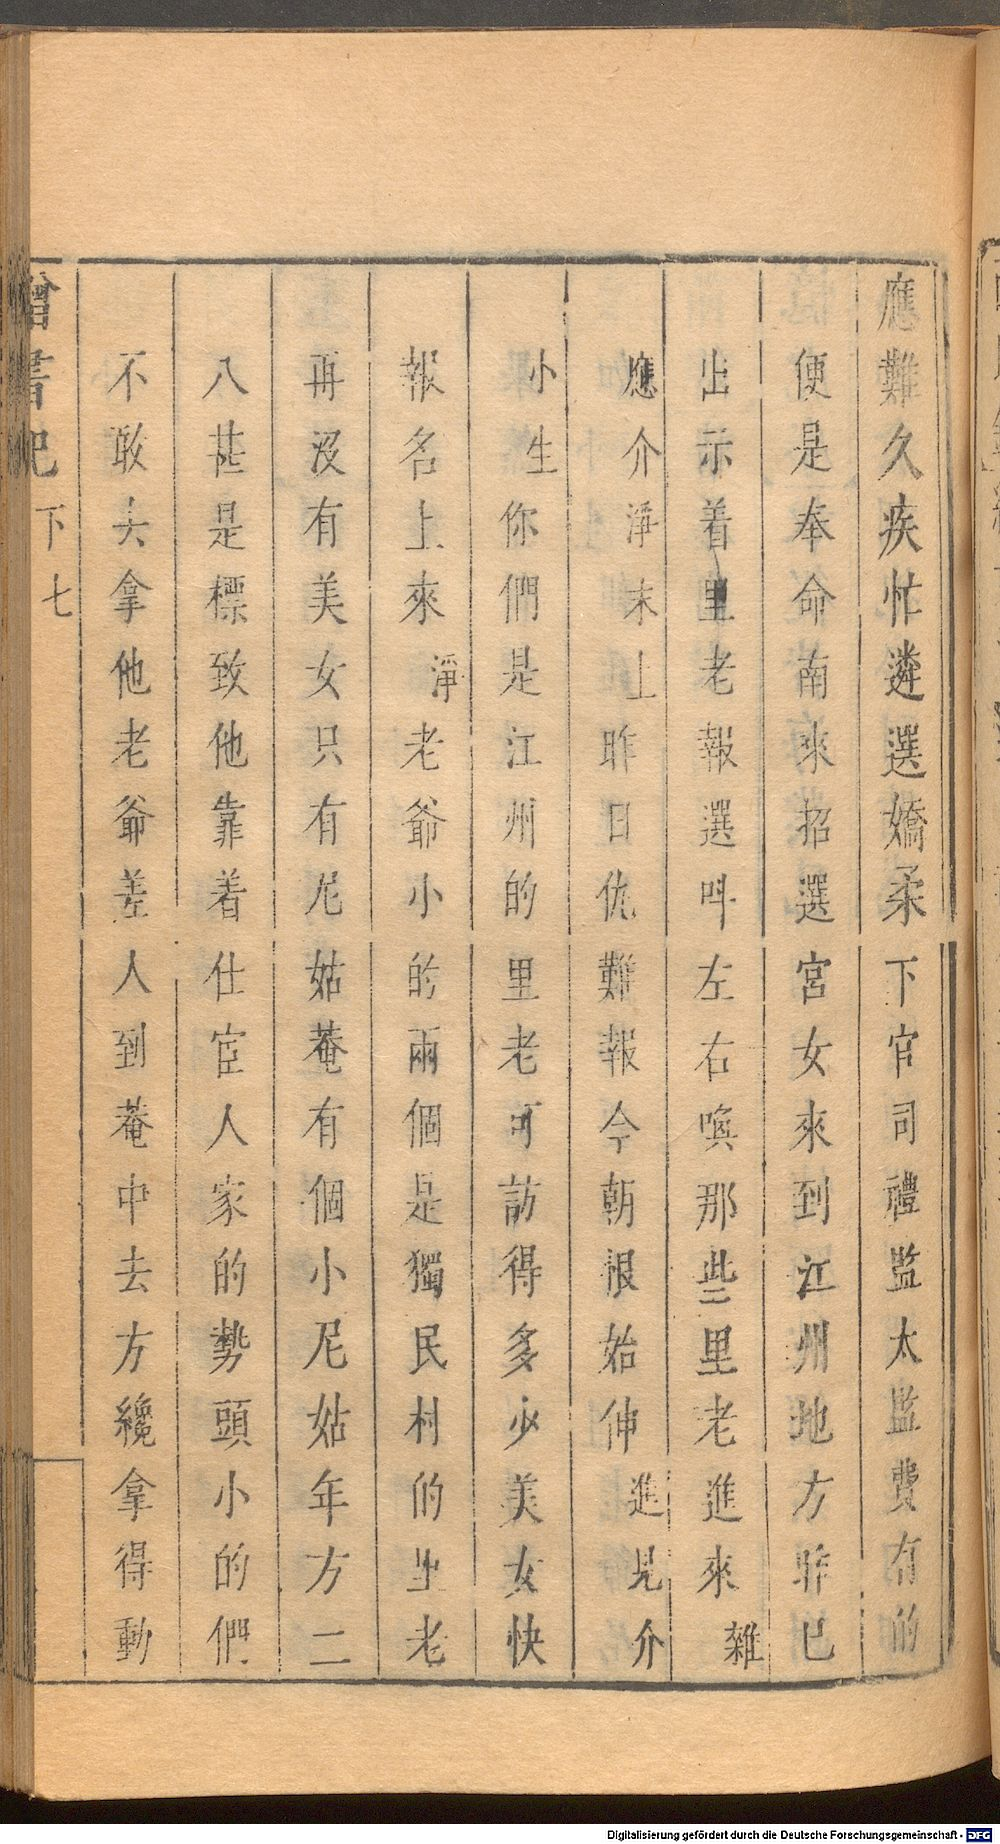 應難久疾忙遴選嬌柔下官司禮監太監費有的
便是奉命南來招選宮女來到江州地方昨已
出示着里老報選呌左右喚那些里老進來雜
應介淨末上昨日仇難報今朝恨始伸進見介
小生你們是江州的里老可訪得多少美女快
報名上來淨老爺小的兩個是獨民村的里老
再沒有美女只有尼姑菴有個小尼姑年方二
八甚是標致他靠着仕宦人家的勢頭小的們
不敢去拿他老爺差人到菴中去方纔拿得動
書記
下
七
Digitalisierung gefördert durch die Deutsche Forschungsgemeinschaft - DFG